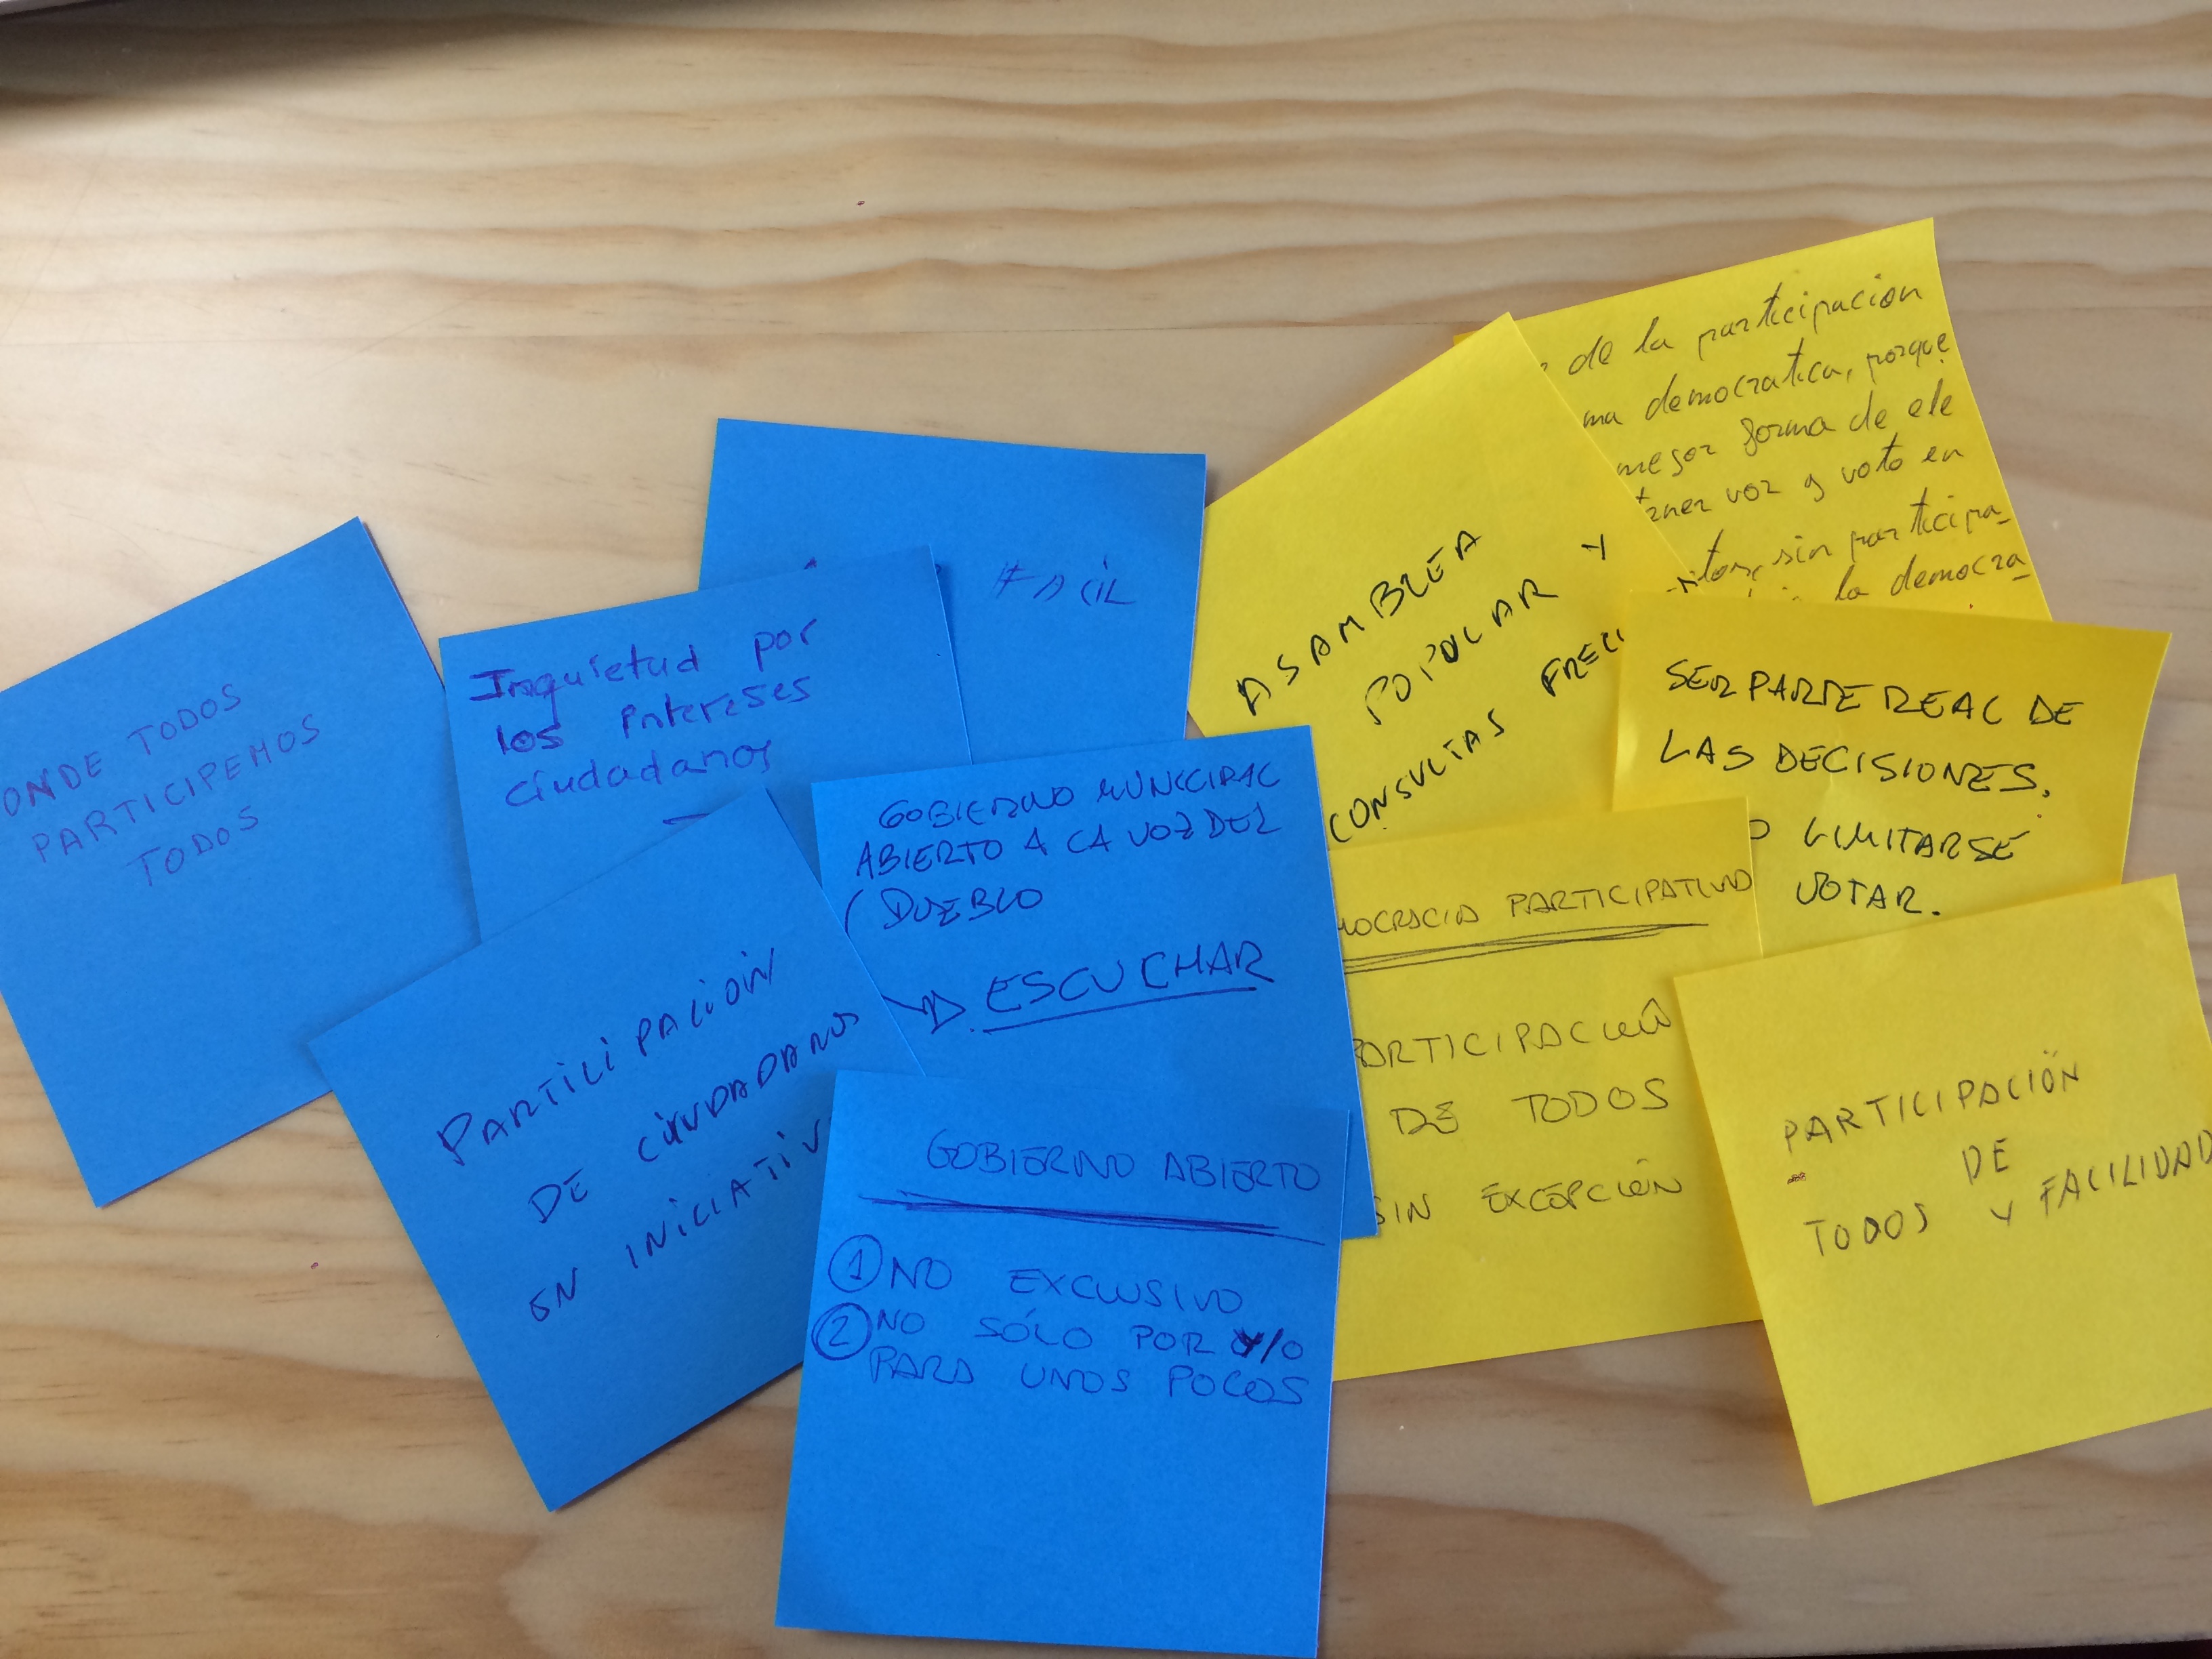 ONDE TODOS
PARTICIPEMOS
TODOS
Inquietud por
los intereses
ciudadanos
FACIL
PARTICIPACIÓN
DE CIUDADANOS
EN INICIATIV
GOBIERNO MUNICIPAL
ABIERTO A LA VOZ DEL
PUEBLO
→ ESCUCHAR
GOBIERNO ABIERTO
① NO EXCLUSIVO
② NO SÓLO POR Y/O
PARA UNOS POCOS
ASAMBLEA
POPULAR Y
CONSULTAS FRECU
de la participacion
ma democratica, porque
mejor forma de ele
tener voz y voto en
sin participa-
la democra-
SER PARTE REAL DE
LAS DECISIONES.
O LIMITARSE
VOTAR.
MOCRACIA PARTICIPATIVA
PARTICIPACIÓN
DE TODOS
SIN EXCEPCIÓN
PARTICIPACIÓN
DE
TODOS Y FACILIDAD